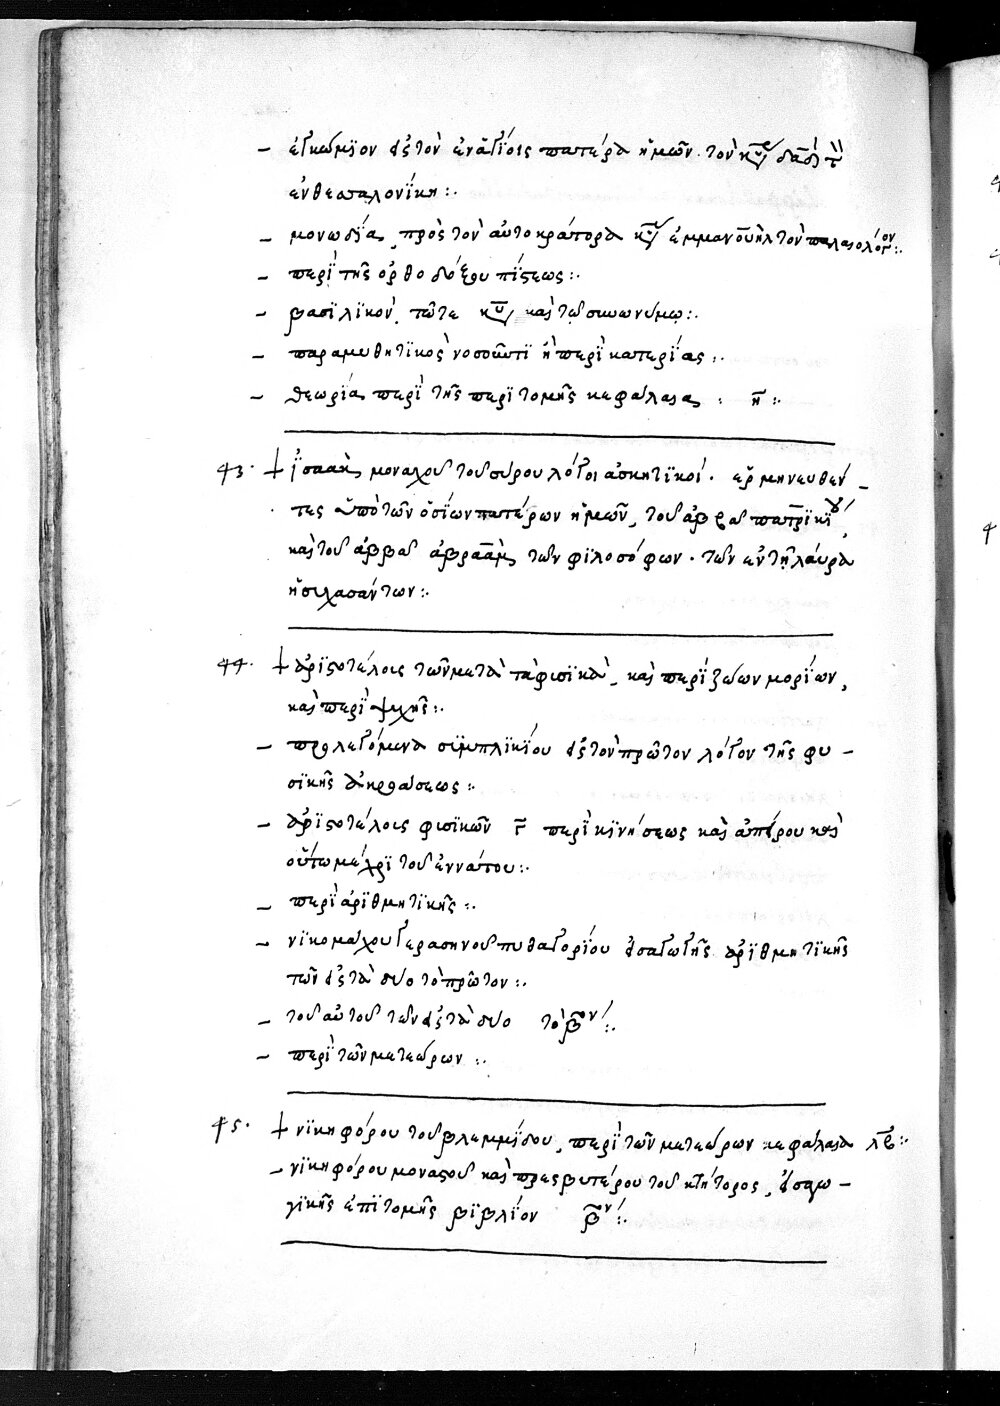 – ἐγκώμϊον εἰς τὸν ἐν ἁγΐοις πατέρα ἡμῶν τὸν κῦρ
ἐν θεσσαλονίκη :.
– μονωδία, πρὸς τὸν αὐτοκράτορα κῦρ ἐμμανουὴλ τὸν παλαιολόγον :.
– περὶ τῆς ὀρθοδόξου πίστεως :.
– βασϊλϊκὸν, τῶτε κῦρ καὶ τῷ συνωνύμω :.
– παραμυθητϊκὸς νοσοῦντϊ ἢ περὶ καρτερΐας :.
– θεωρία περὶ τῆς περϊτομῆς κεφάλαια : η :.
93. † ἰσαὰκ μοναχοῦ τοῦ σύρου λόγοι ἀσκητϊκοί. ἑρμηνευθέν–
τες ὑπὸ τῶν ὁσίων πατέρων ἡμῶν, τοῦ ἀββᾶ πατρϊκϊου,
καὶ τοῦ ἀββᾶ ἀβραὰμ τῶν φϊλοσόφων. τῶν ἐν τῆ λαύρα
ἡσυχασάντων :.
94. † ἀρϊστοτέλους τῶν μετὰ τὰ φυσϊκὰ, καὶ περὶ ζώων μορΐων,
καὶ περὶ ψυχῆς :.
– προλεγόμενα σϊμπλϊκΐου εἰς τὸν πρῶτον λόγον τῆς φυ–
σϊκῆς ἀκροάσεως :.
– ἀρϊστοτέλους φυσϊκῶν γ περὶ κϊνήσεως καὶ ἀπείρου καὶ
οὕτω μέχρϊ τοῦ ἐννάτου :.
– περὶ ἀρϊθμητϊκῆς :.
– νϊκομάχου γερασηνοῦ πυθαγορΐου εἰσαγωγῆς ἀρϊθμητϊκῆς
τῶν εἰς τὰ δύο τὸ πρῶτον :.
– τοῦ αὐτοῦ τῶν εἰς τὰ δύο τὸ βον :.
– περὶ τῶν μετεώρων :.
95. † νϊκηφόρου τοῦ βλεμμΐδου, περὶ τῶν μετεώρων κεφάλαια λβ :.
– νϊκηφόρου μοναστοῦ καὶ πρεσβυτέρου τοῦ κτήτορος, εἰσαγω–
γϊκῆς ἐπϊτομῆς βϊβλΐον βον :.